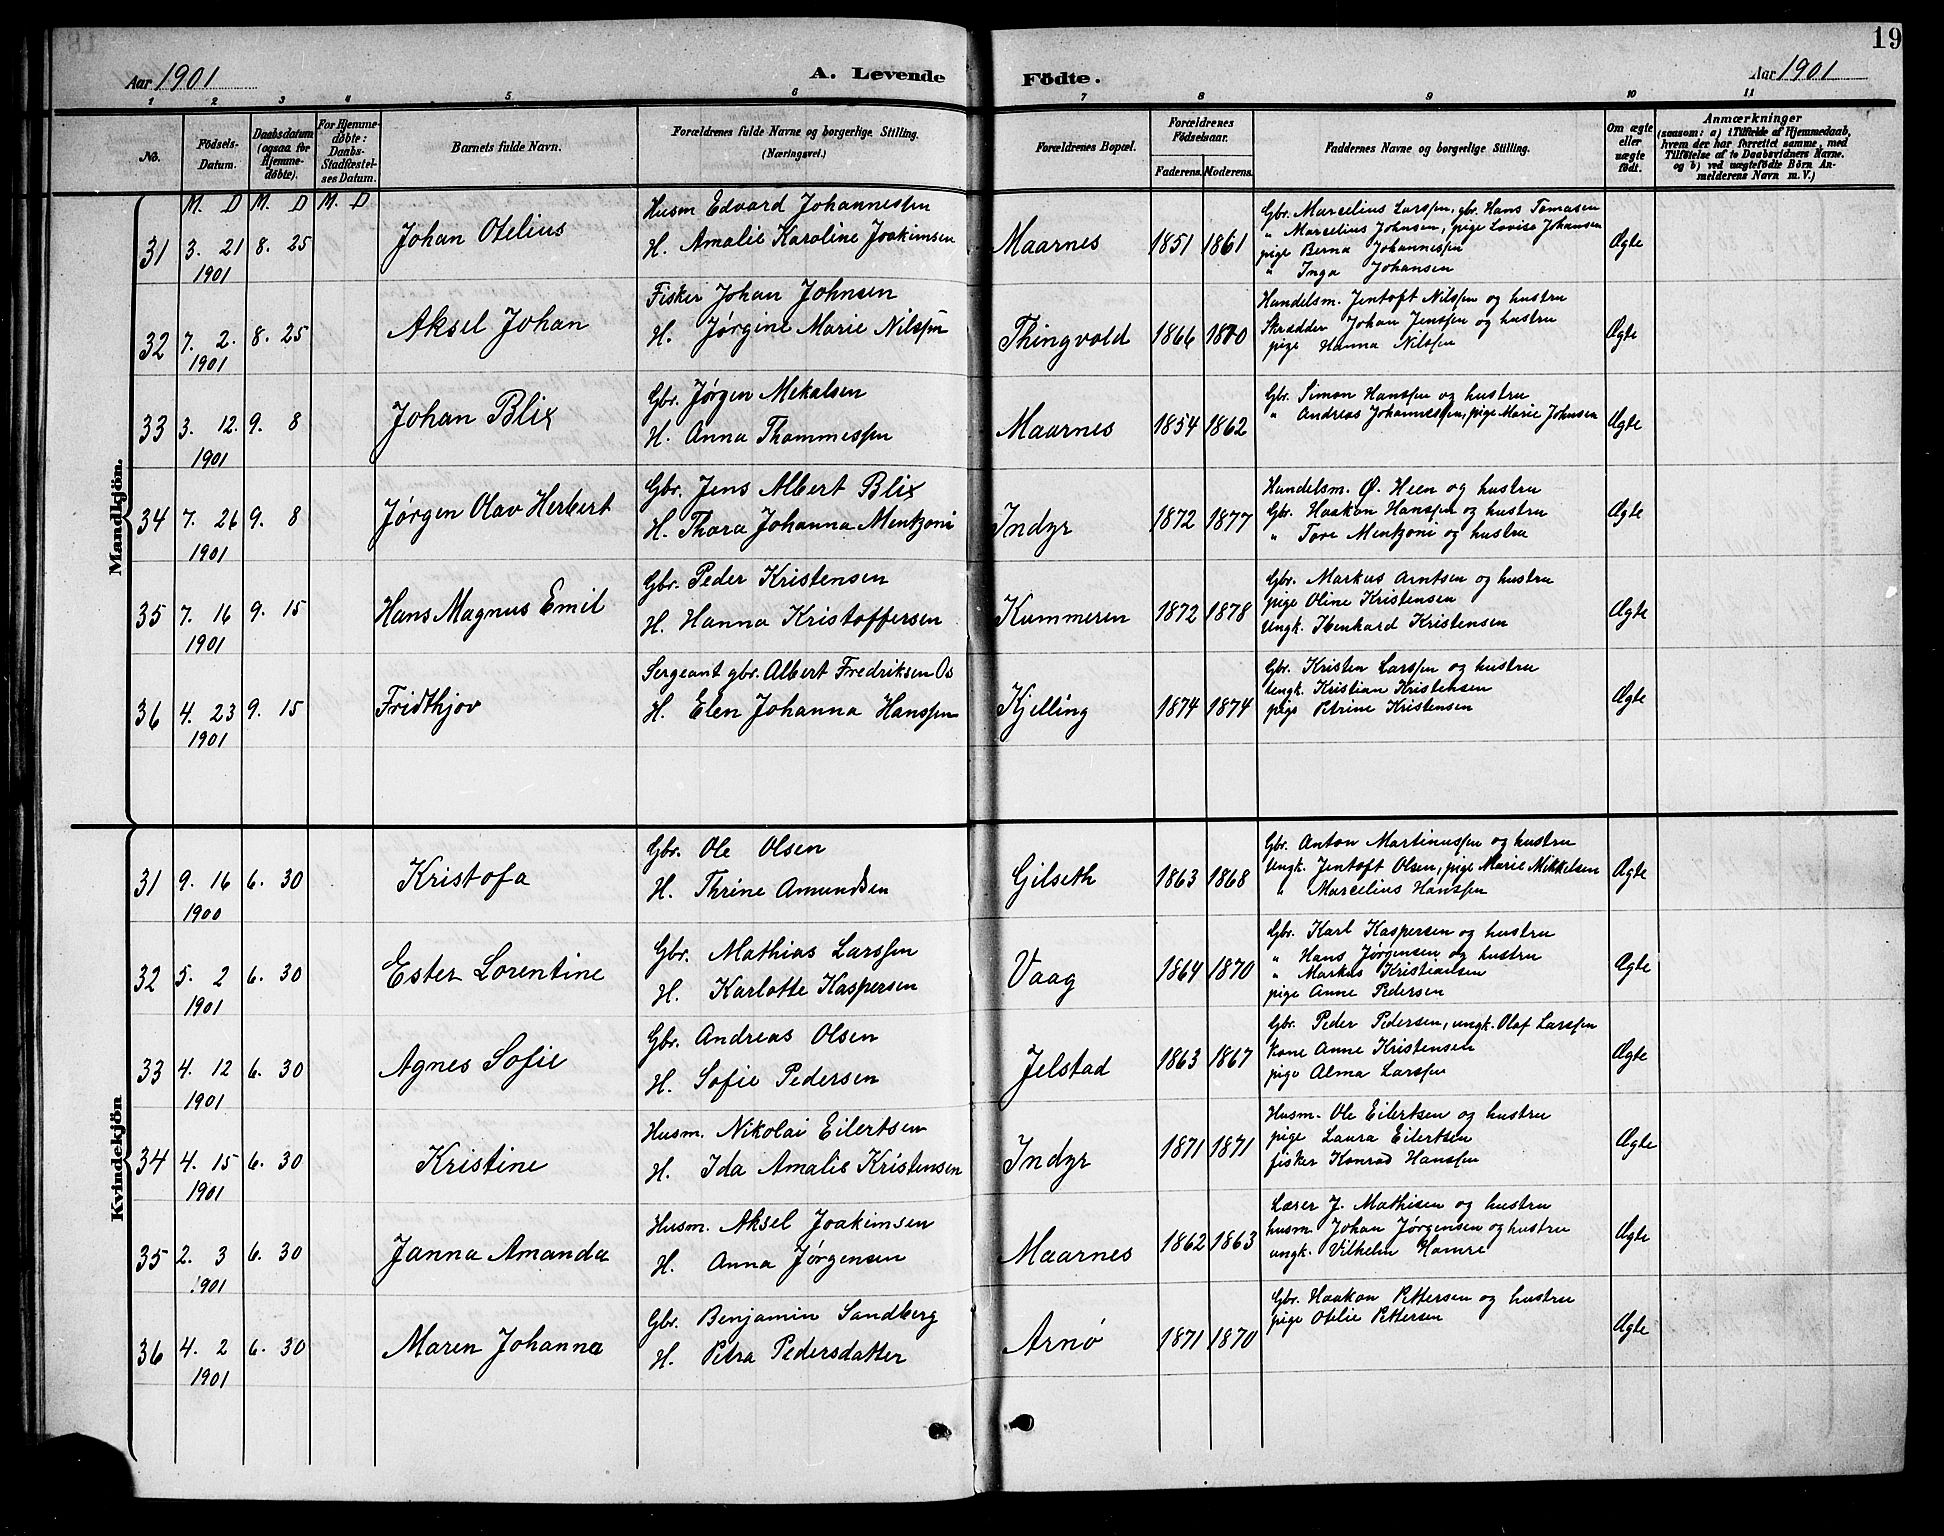 19
Aar 1901
A. Levende Födte.
Aar 1901
1 2 3 4 5 6 7 8 9 10 11
No.
Födsels-Datum.
Daabsdatum (ogsaa for Hjemme-döbte).
For Hjemme-döbte: Daabs-Stadfæstel-ses Datum.
Barnets fulde Navn.
Forældrenes fulde Navne og borgerlige Stilling. (Næringsvei.)
Forældrenes Bopæl.
Forældrenes Födselsaar.
Faderens. Moderens.
Faddernes Navne og borgerlige Stilling.
Om ægte eller uægte födt.
Anmærkninger
(saasom: a) i Tilfælde af Hjemmedaab, hvem der har forrettet samme, med Tilföielse af to Daabsvidners Navne, og b) ved uægtefödte Börn An-melderens Navn m. V.)
M. D M. D M. D
Mandkjön.
31 3. 21 1901 8. 25 Johan Otelius
Husm Edvard Johannesen
H. Amalie Karoline Joakimsen
Maarnes 1851 1861
Gbr. Marcelius Larssen, gbr. Hans Tomasen
" Marcelius Johnsen, pige Lovise Johansen
pige Berna Johannessen
" Inga Johansen
Ægte
32 7. 2. 1901 8. 25 Aksel Johan
Fisker Johan Johnsen
H. Jørgine Marie Nilssen
Thingvold 1866 1870
Handelsm. Jentoft Nilssen og hustru
Skrædder Johan Jenssen og hustru
pige Hanna Nilssen
Ægte
33 3. 12. 1901 9. 8 Johan Blix
Gbr. Jørgen Mekalsen
H. Anna Thommessen
Maarnes 1854 1862
Gbr. Simon Hanssen og hustru
" Andreas Johannessen, pige Marie Johnsen
Ægte
34 7. 26 1901 9. 8 Jørgen Olav Herbert
Gbr. Jens Albert Blix
H. Thora Johanna Mentzoni
Indyr 1872 1877
Handelsm. Ø. Heen og hustru
Gbr. Haakon Hanssen og hustru
" Tore Mentzoni og hustru
Ægte
35 7. 16 1901 9. 15 Hans Magnus Emil
Gbr. Peder Kristensen
H. Hanna Kristoffersen
Kummeren 1872 1878
Gbr. Markus Arntsen og hustru
pige Oline Kristensen
Ungk. Ibenhard Kristensen
Ægte
36 4. 23 1901 9. 15 Fridthjov
Sergeant gbr. Albert Fredriksen Os
H. Elen Johanna Hanssen
Kjelling 1874 1874
Gbr. Kristen Larssen og hustru
Ungk. Kristian Kristensen
pige Petrine Kristensen
Ægte
Kvindekjön
31 9. 16 1900 6. 30 Kristofa
Gbr. Ole Olsen
H. Thrine Amundsen
Gilseth 1863 1868
Gbr. Anton Martinussen og hustru
Ungk. Jentoft Olsen, pige Marie Mikkelsen
" Marcelius Hanssen
Ægte
32 5. 2 1901 6. 30 Ester Lorentine
Gbr. Mathias Larssen
H. Karlotte Kaspersen
Vaag 1864 1870
Gbr. Karl Kaspersen og hustru
" Hans Jørgensen og hustru
" Markus Kristiansen
pige Anne Pedersen
Ægte
33 4. 12 1901 6. 30 Agnes Sofie
Gbr. Andreas Olsen
H. Sofie Pedersen
Jelstad 1863 1867
Gbr. Peder Pedersen, ungk. Olaf Larssen
Kone Anne Kristensen
pige Alma Larssen
Ægte
34 4. 15 1901 6. 30 Kristine
Husm. Nikolai Eilertsen
H. Ida Amalie Kristensen
Indyr 1871 1871
Husm. Ole Eilertsen og hustru
pige Laura Eilertsen
fisker Konrad Hanssen
Ægte
35 2. 3 1901 6. 30 Janna Amanda
Husm. Aksel Joakimsen
H. Anna Jørgensen
Maarnes 1862 1863
Lærer J. Mathisen og hustru
husm. Johan Jørgensen og hustru
ungk. Vilhelm Hamre
Ægte
36 4. 2 1901 6. 30 Maren Johanna
Gbr. Benjamin Sandberg
H. Petra Pedersdatter
Arnø 1871 1870
Gbr. Haakon Pettersen og hustru
pige Otelie Pettersen
Ægte